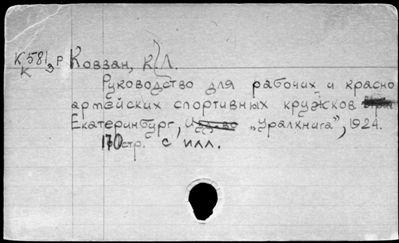 К 581 Р Ковзан, К. Л.
К 3
Руководство для рабочих и красно
армейских спортивных кружков
Екатеринбург, "Уралкнига", 1924.
170 стр. с илл.